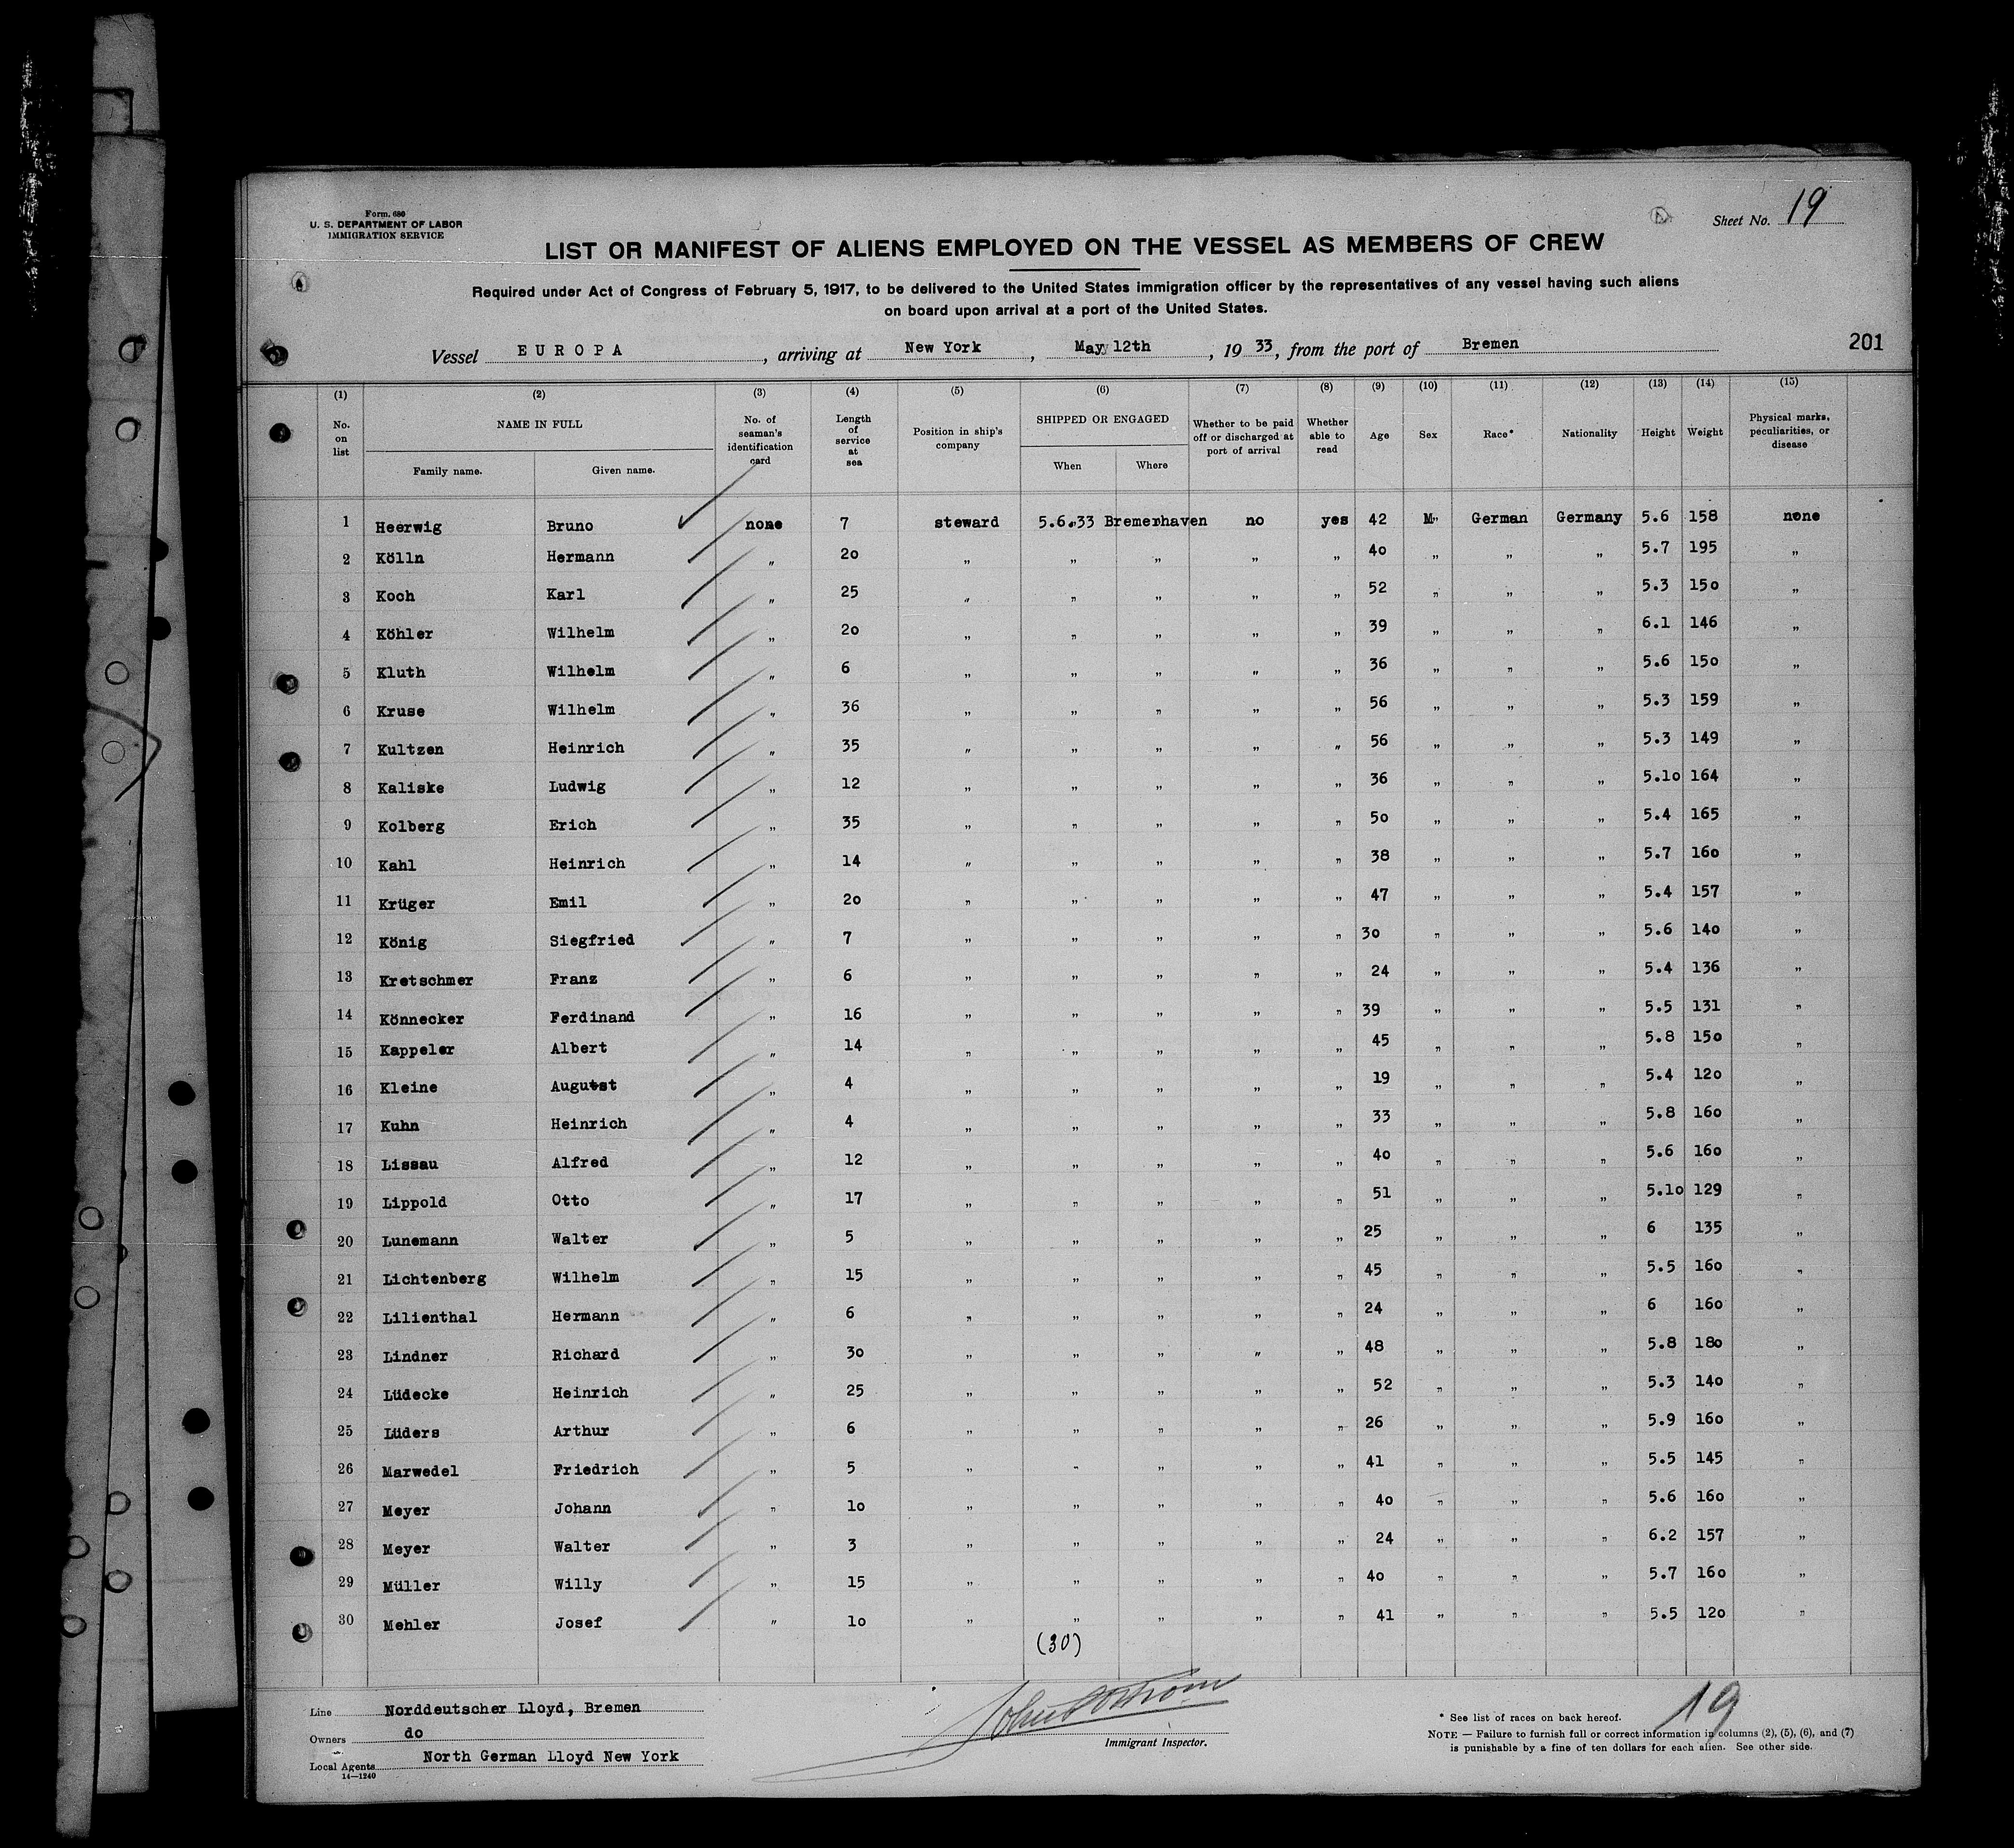 Form. 680
U. S. DEPARTMENT OF LABOR
IMMIGRATION SERVICE
Sheet No. 19
LIST OR MANIFEST OF ALIENS EMPLOYED ON THE VESSEL AS MEMBERS OF CREW
Required under Act of Congress of February 5, 1917, to be delivered to the United States immigration officer by the representatives of any vessel having such aliens
on board upon arrival at a port of the United States.
Vessel EUROPA, arriving at New York, May 12th, 1933, from the port of Bremen
201
(1) (2) (3) (4) (5) (6) (7) (8) (9) (10) (11) (12) (13) (14) (15)
No. on list NAME IN FULL Family name. Given name. No. of seaman's identification card Length of service at sea Position in ship's company SHIPPED OR ENGAGED When Where Whether to be paid off or discharged at port of arrival Whether able to read Age Sex Race* Nationality Height Weight Physical marks, peculiarities, or disease
1 Heerwig Bruno none 7 steward 5.6.33 Bremerhaven no yes 42 M German Germany 5.6 158 none
2 Kölln Hermann „ 20 „ „ „ „ „ 40 „ „ „ 5.7 195 „
3 Koch Karl „ 25 „ „ „ „ „ 52 „ „ „ 5.3 150 „
4 Köhler Wilhelm „ 20 „ „ „ „ „ 39 „ „ „ 6.1 146 „
5 Kluth Wilhelm „ 6 „ „ „ „ „ 36 „ „ „ 5.6 150 „
6 Kruse Wilhelm „ 36 „ „ „ „ „ 56 „ „ „ 5.3 159 „
7 Kultzen Heinrich „ 35 „ „ „ „ „ 56 „ „ „ 5.3 149 „
8 Kaliske Ludwig „ 12 „ „ „ „ „ 36 „ „ „ 5.10 164 „
9 Kolberg Erich „ 35 „ „ „ „ „ 50 „ „ „ 5.4 165 „
10 Kahl Heinrich „ 14 „ „ „ „ „ 38 „ „ „ 5.7 160 „
11 Krüger Emil „ 20 „ „ „ „ „ 47 „ „ „ 5.4 157 „
12 König Siegfried „ 7 „ „ „ „ „ 30 „ „ „ 5.6 140 „
13 Kretschmer Franz „ 6 „ „ „ „ „ 24 „ „ „ 5.4 136 „
14 Könnecker Ferdinand „ 16 „ „ „ „ „ 39 „ „ „ 5.5 131 „
15 Kappeler Albert „ 14 „ „ „ „ „ 45 „ „ „ 5.8 150 „
16 Kleine August „ 4 „ „ „ „ „ 19 „ „ „ 5.4 120 „
17 Kuhn Heinrich „ 4 „ „ „ „ „ 33 „ „ „ 5.8 160 „
18 Lissau Alfred „ 12 „ „ „ „ „ 40 „ „ „ 5.6 160 „
19 Lippold Otto „ 17 „ „ „ „ „ 51 „ „ „ 5.10 129 „
20 Lunemann Walter „ 5 „ „ „ „ „ 25 „ „ „ 6 135 „
21 Lichtenberg Wilhelm „ 15 „ „ „ „ „ 45 „ „ „ 5.5 160 „
22 Lilienthal Hermann „ 6 „ „ „ „ „ 24 „ „ „ 6 160 „
23 Lindner Richard „ 30 „ „ „ „ „ 48 „ „ „ 5.8 180 „
24 Lüdecke Heinrich „ 25 „ „ „ „ „ 52 „ „ „ 5.3 140 „
25 Lüders Arthur „ 6 „ „ „ „ „ 26 „ „ „ 5.9 160 „
26 Marwedel Friedrich „ 5 „ „ „ „ „ 41 „ „ „ 5.5 145 „
27 Meyer Johann „ 10 „ „ „ „ „ 40 „ „ „ 5.6 160 „
28 Meyer Walter „ 3 „ „ „ „ „ 24 „ „ „ 6.2 157 „
29 Müller Willy „ 15 „ „ „ „ „ 40 „ „ „ 5.7 160 „
30 Mehler Josef „ 10 „ „ „ „ „ 41 „ „ „ 5.5 120 „
(30)
Line Norddeutscher Lloyd, Bremen
Owners do
Local Agents North German Lloyd New York
14—1240
Immigrant Inspector.
19
* See list of races on back hereof.
NOTE — Failure to furnish full or correct information in columns (2), (5), (6), and (7)
is punishable by a fine of ten dollars for each alien. See other side.